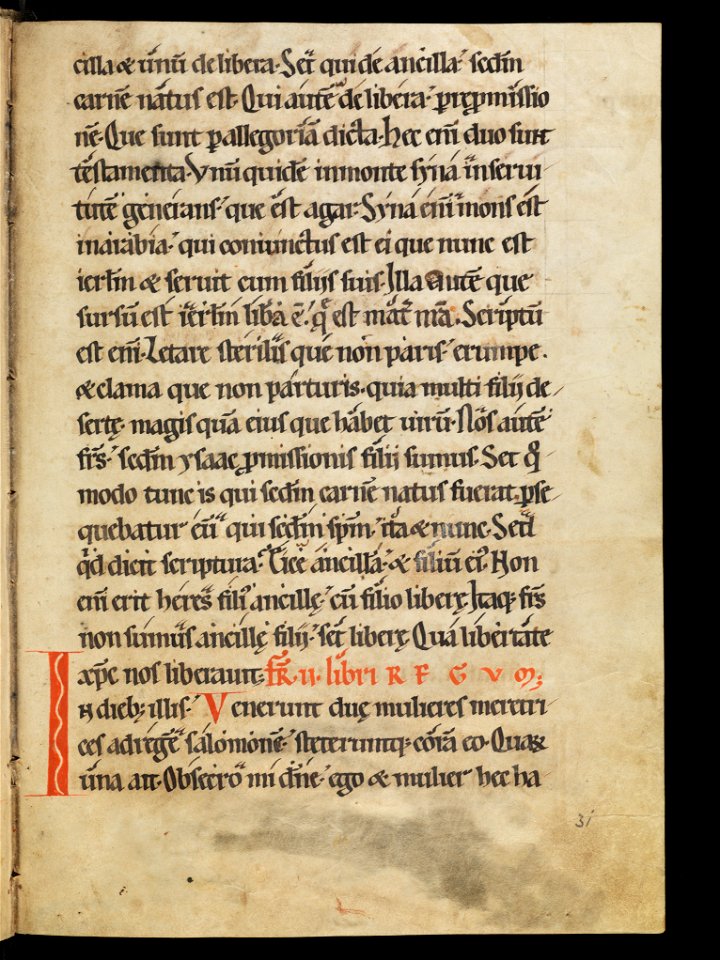 cilla & unū de libera. Set̄ qui de ancilla secdm
carnē natus est. Qui autē de libera p repromissio
nē. Que sunt p allegoriā dicta. Hec enī duo sunt
testamenta. Vnū quidē in monte syna in serui
tutē generans que est agar. Syna enī mons est
in arabia qui coniunctus est ei que nunc est
ierlm & seruit cum filijs suis. Illa autē que
sursū est ierlm libera ē. q̄ est mat̄ nr̄a. Scriptū
est enī. Letare sterilis que non paris erumpe.
& clama que non parturis. quia multi filij de
sertę. magis quā eius que habet uirū. Nos autē
frs̄ secdm ysaac p̄missionis filij sumus. Set qͦ
modo tunc is qui secdm carnē natus fuerat pse
quebatur eū qui secdm spm̄ ita & nunc. Sed
qd dicit scriptura. Eice ancillā & filiū ei᾽. Non
enī erit heres fili᾽ ancillę cū filio liberę. Itaq; frs̄
non sumus ancillę filij set liberę. Quā libertate
xp̄c nos liberauit. FR̄. II. libri REGVM;
IN dieb; illis. Venerunt duę mulieres meretri
ces ad regē salomonē steteruntq; corā eo. Quaꝝ
una ait. Obsecro mi dn̄e ego & mulier hec ha
31